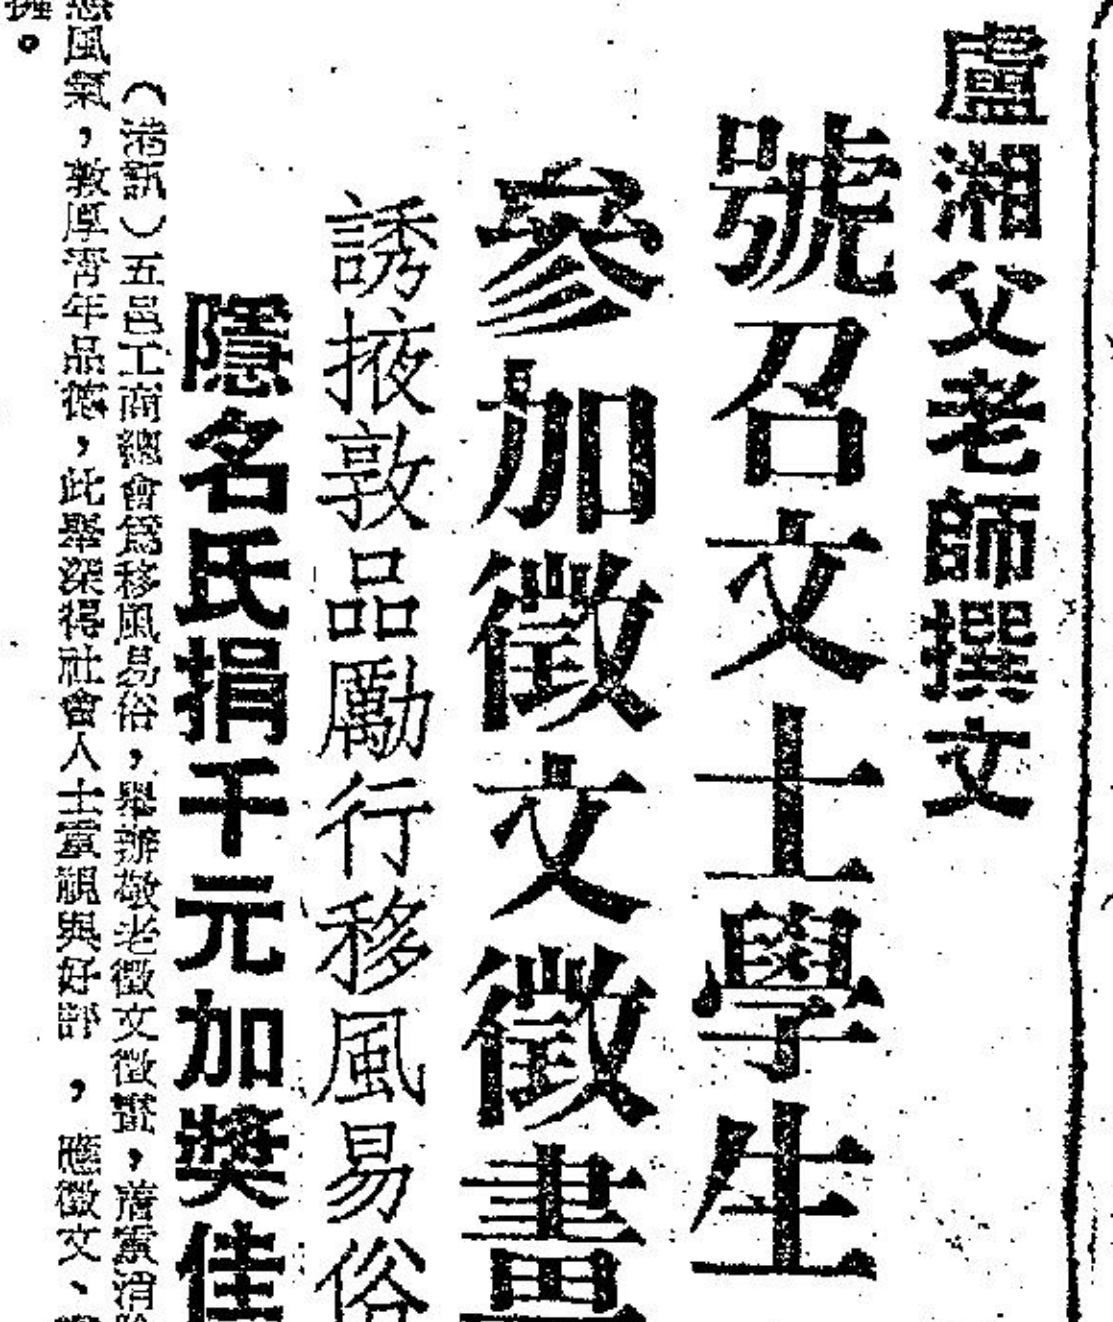 盧湘父老師撰文
號召文士學生
參加徵文徵畫
誘掖敦品勵行移風易俗
隱名氏捐千元加奬佳
(港訊)五邑工商總會爲移風易俗,舉辦敬老徵文徵畫,藉資消除
風氣,敦厚青年品德,此舉深得社會人士重視與好評,應徵文、
擁。